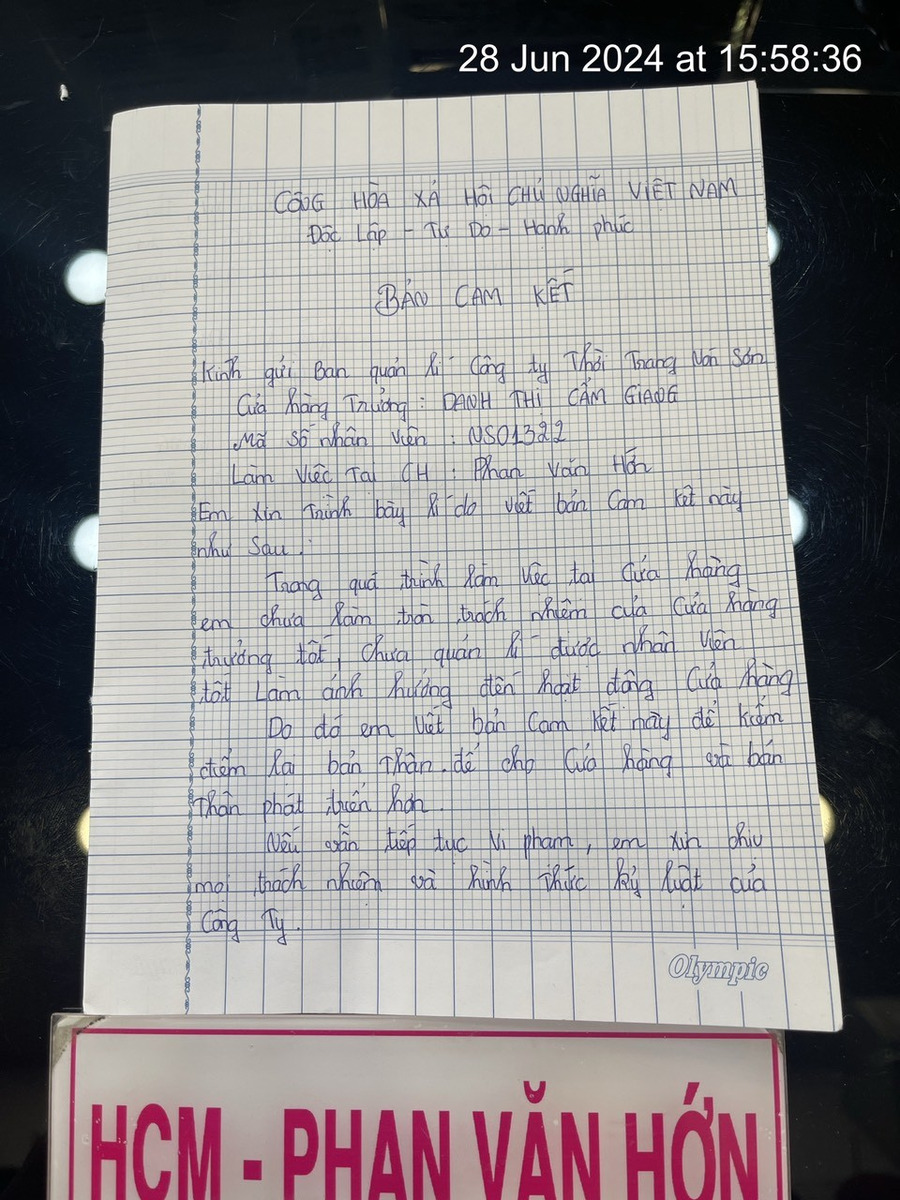 28 Jun 2024 at 15:58:36
CÔNG HÒA XÃ HÔI CHỦ NGHĨA VIỆT NAM
Độc Lập - Tự Do - Hạnh phúc
BẢN CAM KẾT
Kính gửi Ban quản lí Công ty Thời Trang Văn Sơn
Cửa hàng Trưởng : DANH THỊ CẨM GIANG
Mã số nhân viên : NS01322
Làm việc Tại CH : Phan Văn Hớn
Em xin Trình bày lí do viết bản Cam kết này
như sau :
Trong quá trình làm việc tại Cửa hàng
em chưa làm tròn trách nhiệm của Cửa hàng
trưởng tốt, chưa quản lí được nhân viên
tốt Làm ảnh hưởng đến hoạt động Cửa hàng
Do đó em viết bản Cam kết này để kiểm
điểm lại bản Thân. để cho Cửa hàng và bản
Thân phát triển hơn.
Nếu vẫn tiếp tục Vi phạm, em xin chịu
mọi trách nhiệm và hình thức kỷ luật của
Công Ty.
Olympic
HCM - PHAN VĂN HỚN